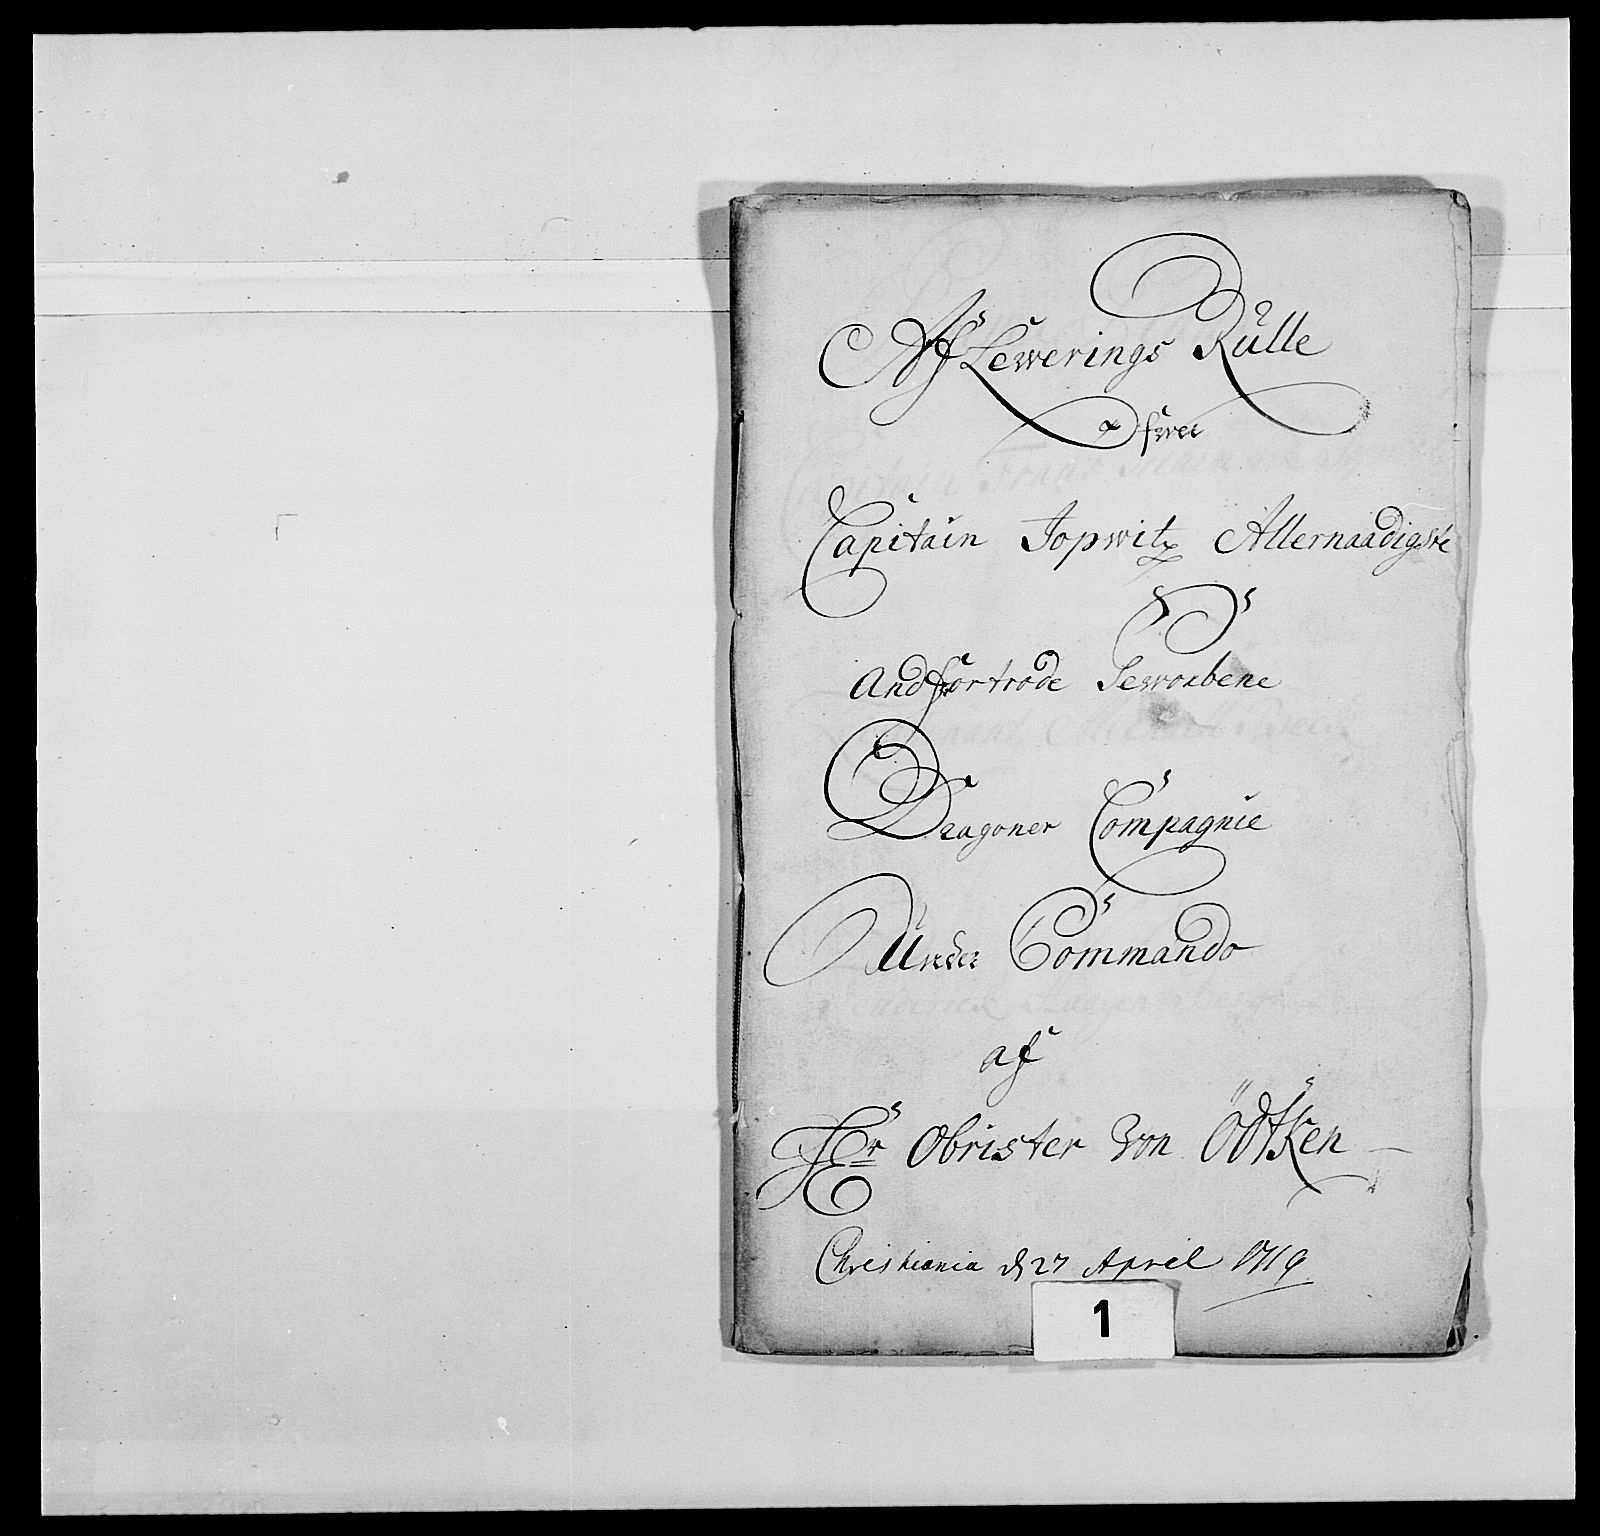 Af Lewerings Rülle
Ofwer
Capitain Jopwitz Allernaadigste
Andfortrode Geworbene
Dragoner Compagnie
Under Commando
af
HEr Obrister Von ÖdtKen
Christiania d 27 April 1719
1